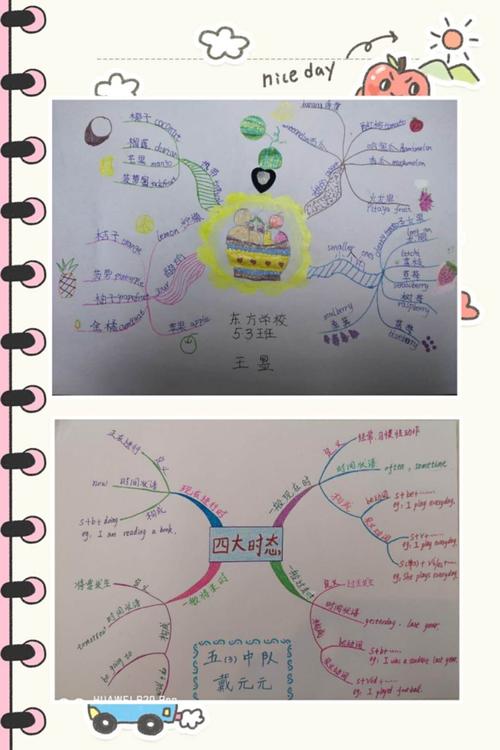 nice day
椰子 coconut
榴莲 durian
芒果 mango
菠萝蜜 jackfruit
banana 香蕉
西红柿 tomato
火龙果
pitaya fruit
桔子 orange
lemon 柠檬
菠萝
柚子
金橘
苹果 apple
smaller ones
litchi
草莓
strawberry
树莓
raspberry
mulberry
桑葚
蓝莓
blueberry
东方学校
53班
王昱
四大时态
现在进行时
正在进行
定义
now 时间状语
构成
s+b+doing
eg: I am reading a book.
一般现在时
定义
经常、习惯性动作
时间状语 often, sometime
构成
be动词
s+be+……
eg: I play everyday.
实义动词
s+v+……
eg: I play everyday.
eg. She plays everyday.
一般将来时
将要发生
定义
tomorrow 时间状语
构成
be going to
一般过去时
定义
时间状语
yesterday, last year
构成
be动词
s+be+……
eg: I was a student last year.
实义动词
s+ved+……
eg: I played football.
五(3)中队
戴元元
HUAWEI P20 Pro